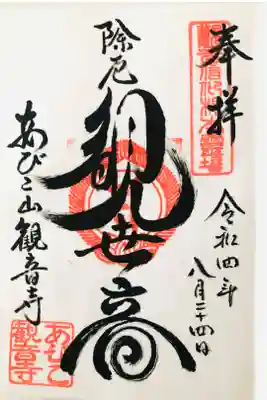 奉拝
令和四年
八月二十四日
除厄
観世音
あびこ山観音寺
あびこ
観音寺